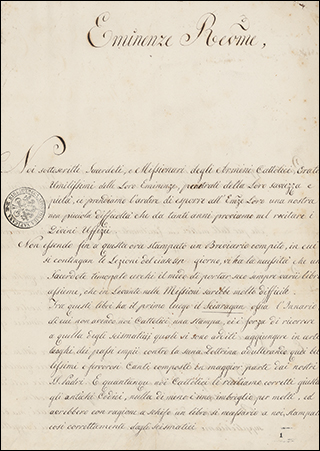 Eminenze Rev̄me,
Noi sottoscritti Sacerdoti, e Missionari degli Armeni Cattolici,
Umilissimi delle Loro Eminenze, penetrati della Loro saviezza e
pietà, ci prendiamo l'ardire di esporre all' Emze Loro una nostra
non piccola difficoltà che da tanti anni proviamo nel recitare i
Divini Uffizi
Non essendo fin a questa ora stampato un Breviario compito, in cui
si contengan le Lezioni del ciascun giorno, vi ha la necessità che un
Sacerdote Europale cerchi il modo di portar seco sempre varii libri
assieme, che in Levante nelle Missioni sarebbe molto difficile.
Tra questi libri ha il primo luogo il Sciaragan ossia l'Innario
di cui non avendo noi Cattolici una stampa, ci è forza di ricorrere
a quella degli scismatici quali vi sono arditi aggiungere in certi
luoghi dei passi empii contro la sana Dottrina adulterando quei bel-
lissimi e fervorosi Canti composti in maggior parte dai nostri
SS. Padri. E quantunque noi Cattolici li recitiamo corretti giusta
gli antichi Codici, nulla di meno è un imbroglio per molti, ed
averebbero con ragione a schifo un libro sì necessario a noi, stampato
così correttamente dagli scismatici.
1